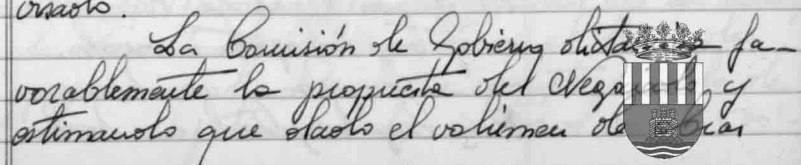 La Comisión de Gobierno dictaminó fa-
vorablemente la propuesta del Negociado, y
estimando que dado el volumen de